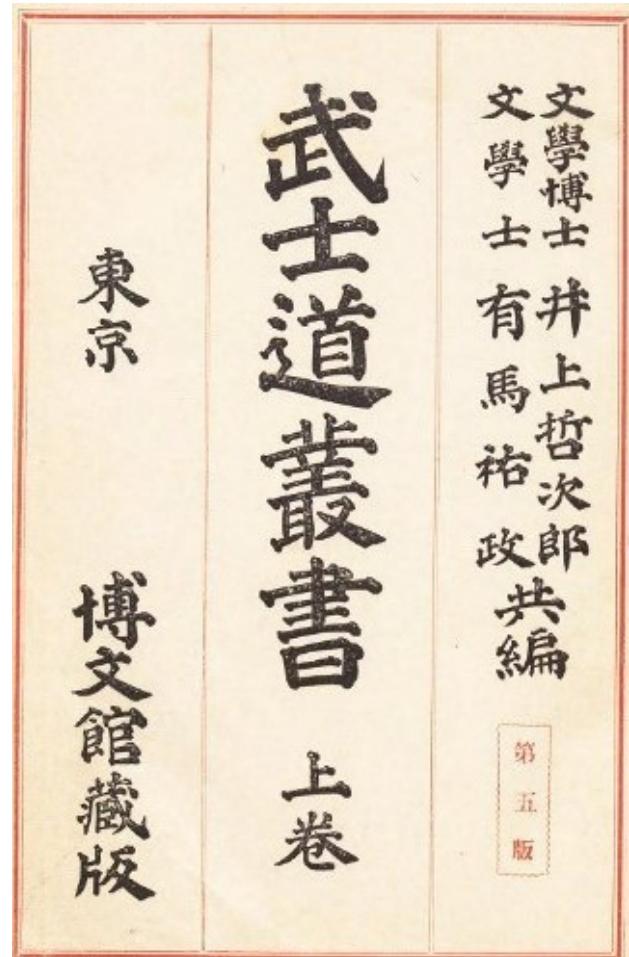 文學博士 井上哲次郎
文學士 有馬祐政
共編
第五版
武士道叢書 上卷
東京 博文館藏版